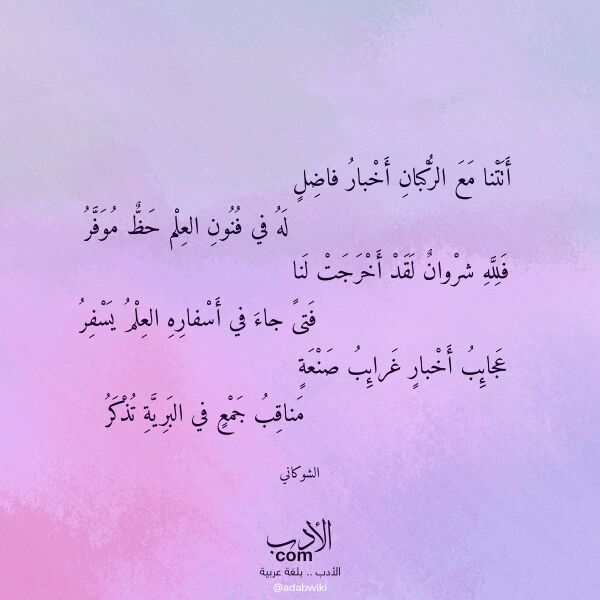 أَتَتْنا مَعَ الرُّكْبَانِ أَخْبارُ فاضِلٍ
لَهُ في فُنُونِ العِلْم حَظٌّ مُوَفَّرُ
فَلِلَّهِ شرْوانٌ لَقَدْ أَخْرَجَتْ لَنا
فَتىً جاءَ في أَسْفارِهِ العِلْمُ يَسْفِرُ
عَجايِبُ أَخْبارٍ غَرايِبُ صَنْعَةٍ
مَناقِبُ جَمْعٍ في البَرِيَّةِ تُذْكَرُ
الشوكاني
الأدب
com
الأدب .. بلغة عربية
@adabwiki